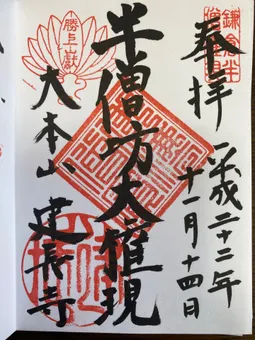 奉拝
平成二十二年
十一月十四日
鎌倉半
半僧坊大権現
勝上嶽
大本山
建長寺